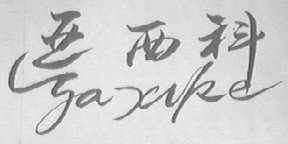 亚西科
yaxike